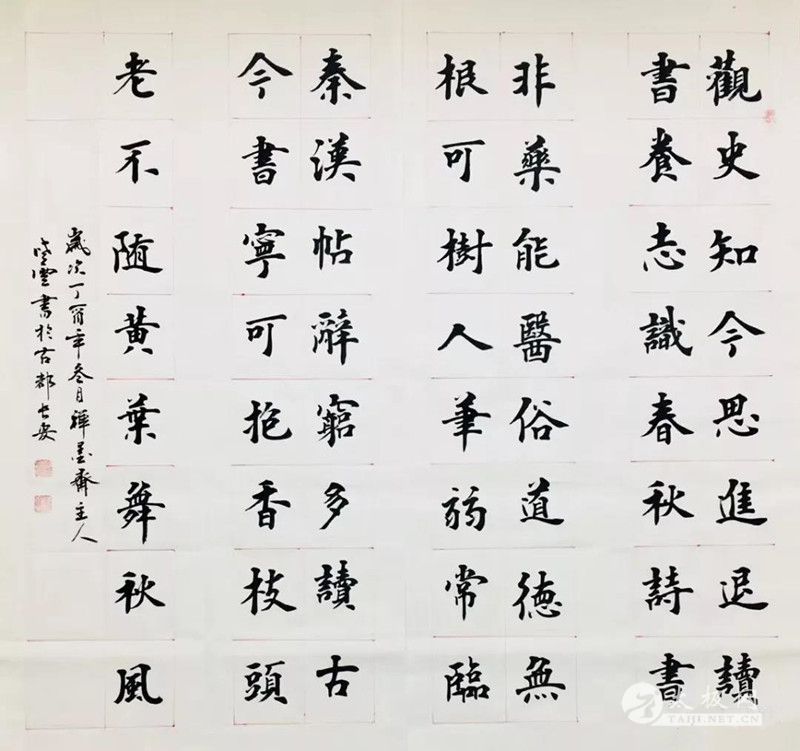 觀史知今思進退讀
書養志識春秋詩書
非藥能醫俗道德無
根可樹人筆弱常臨
秦漢帖辭窮多讀古
今書寧可抱香枝頭
老不随黄葉舞秋風
歲次丁酉年叁月禪墨齋主人
雲書於古都長安
太极网
TAIJI.NET.CN